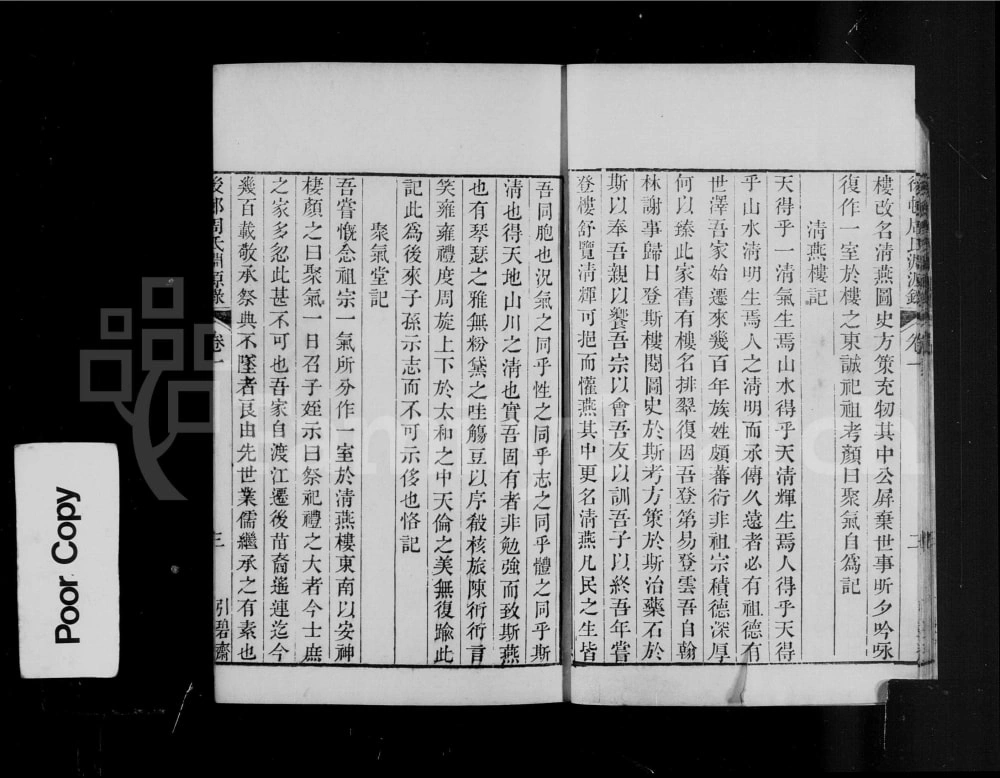 樓改名清燕圖史方策充牣其中公屏棄世事昕夕吟咏
復作一室於樓之東誠祀祖考顏曰聚氣自爲記
清燕樓記
天得乎一清氣生焉山水得乎天清輝生焉人得乎天得
乎山水清明生焉人之清明而承傳久遠者必有祖德有
世澤吾家始遷來幾百年族姓頗蕃衍非祖宗積德深厚
何以臻此家舊有樓名排翠復因吾登第易登雲吾自翰
林謝事歸日登斯樓閱圖史於斯考方策於斯治藥石於
斯以奉吾親以饗吾宗以會吾友以訓吾子以終吾年嘗
登樓舒覽清輝可挹而懽燕其中更名清燕凡民之生皆
吾同胞也況氣之同乎性之同乎志之同乎體之同乎斯
清也得天地山川之清也實吾固有者非勉強而致斯燕
也有琴瑟之雅無粉黛之哇觴豆以序殽核旅陳衎衎言
笑雍雍禮度周旋上下於太和之中天倫之美無復踰此
記此爲後來子孫示志而不可示侈也恪記
聚氣堂記
吾嘗慨念祖宗一氣所分作一室於清燕樓東南以安神
棲顏之曰聚氣一日召子姪示曰祭祀禮之大者今士庶
之家多忽此甚不可也吾家自渡江遷後苗裔遙連迄今
幾百載敬承祭典不墜者良由先世業儒繼承之有素也
周氏淵源錄 卷一 三 引碧齋
Poor Copy